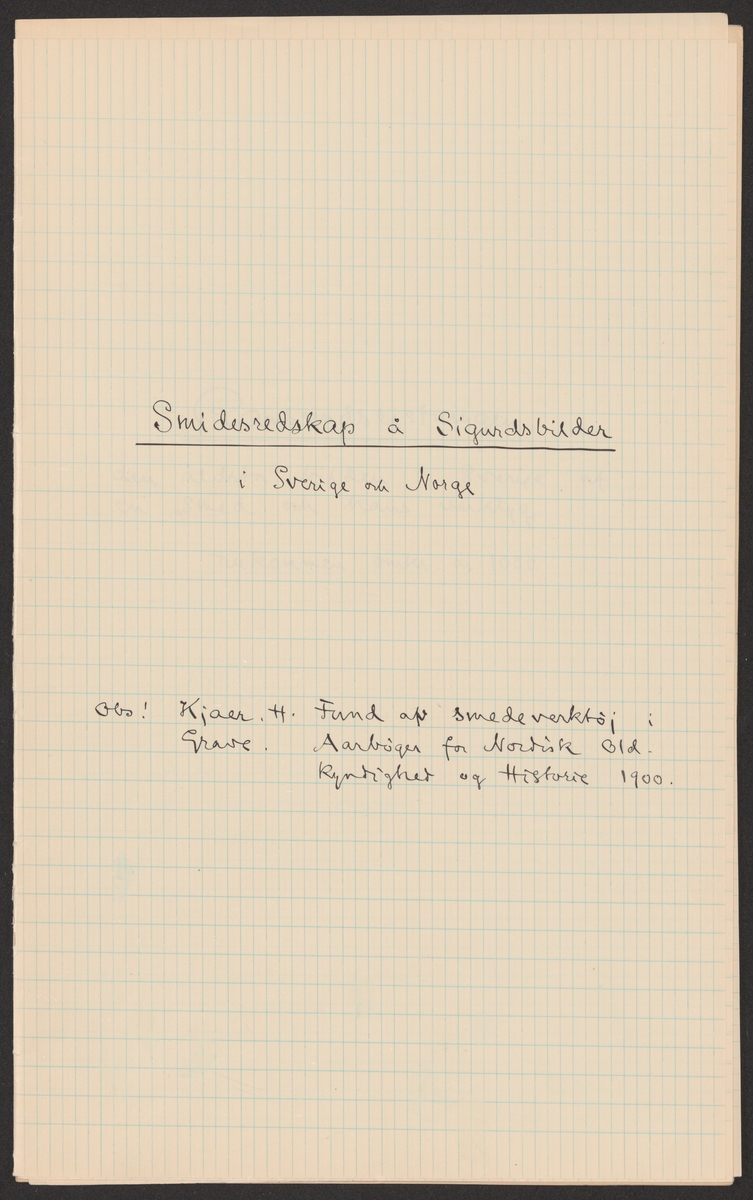 Smidesredskap å Sigurdsbilder
i Sverige och Norge
Obs! Kjaer. H. Fund af smedeverktöj i
Grave. Aarböger for Nordisk Old-
kyndighed og Historie 1900.